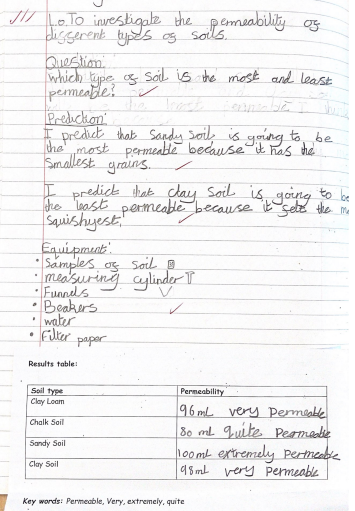 L.O. To investigate the permeability og
disgerent types og soils.
Question:
Which type og soil is the most and least
permeable?
Prediction:
I predict that Sandy soil is going to be
the most permeable because it has the
smallest grains.
I predict that clay soil is going to be
the least permeable because it gets the
squishyest.
Equipment:
• Samples og soil
• measuring cylinder
• Funnels
• Beakers
• water
• Filter paper
Results table:
Soil type Permeability
Clay Loam 96ml very Permeable
Chalk Soil 80 ml quite Permeable
Sandy Soil 100ml extremely Permeable
Clay Soil 98ml very Permeable
Key words: Permeable, Very, extremely, quite